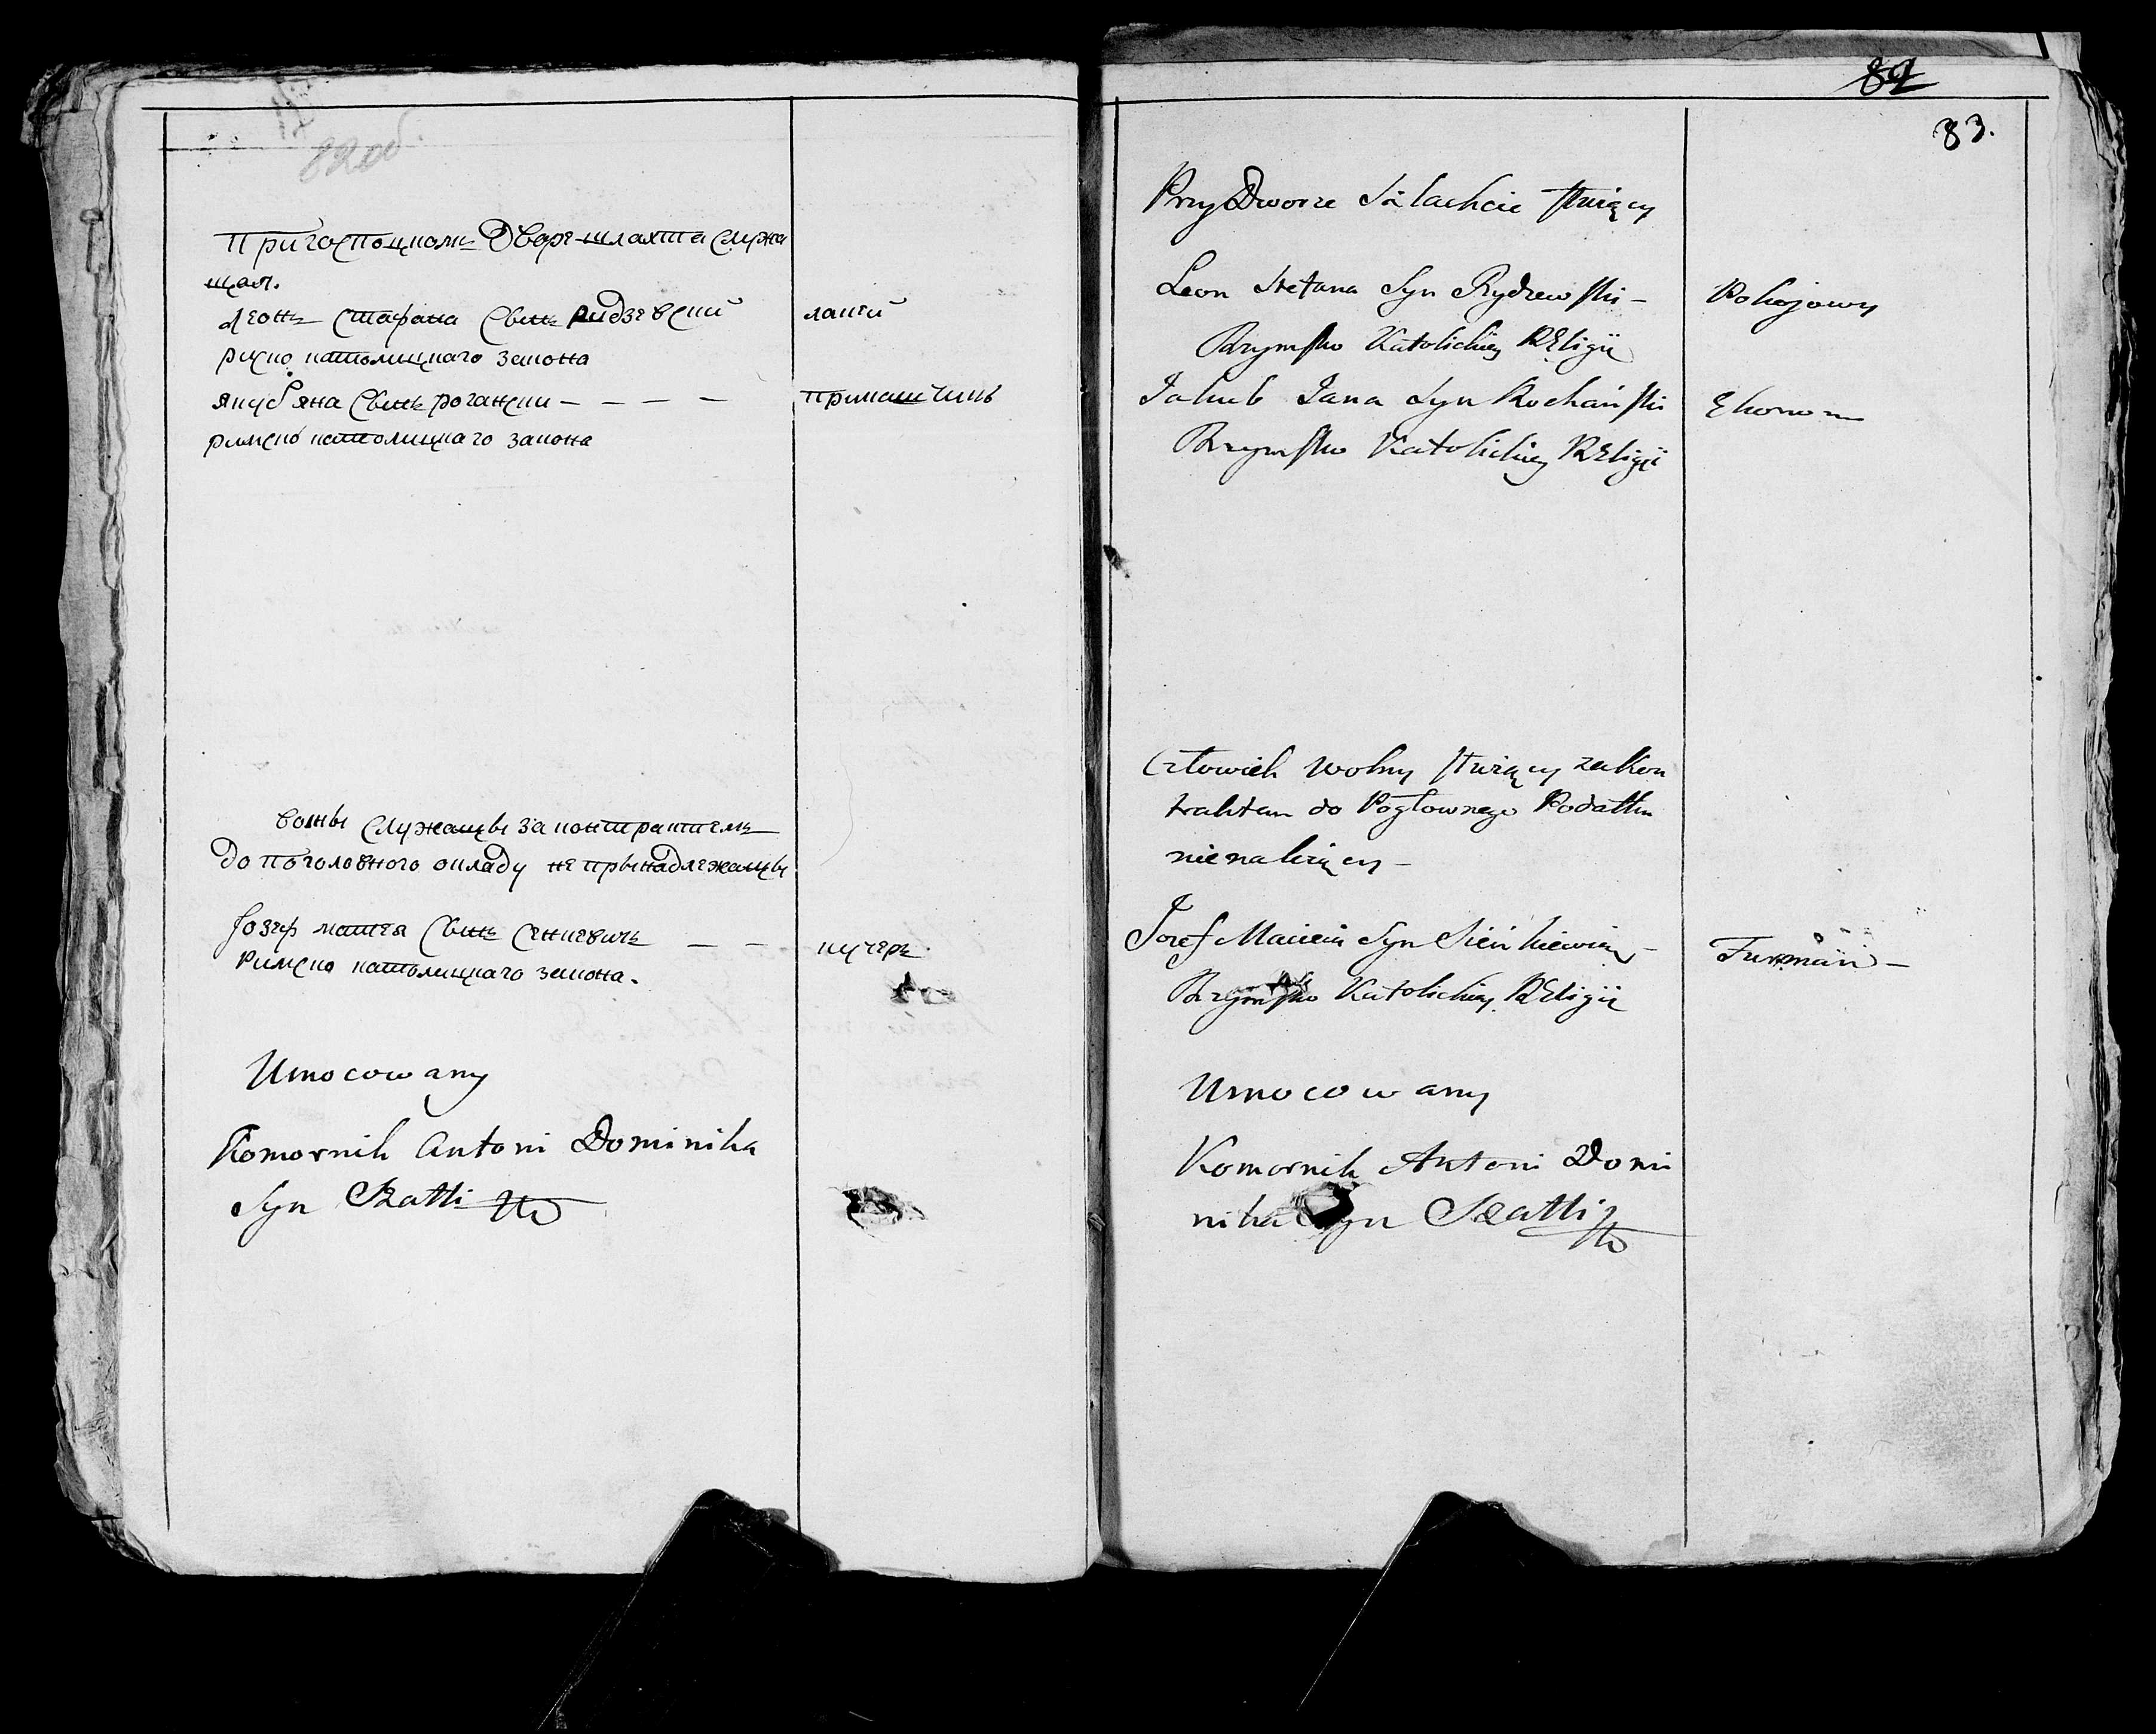 82об.
При господскомъ Дворе шляхта служа
щая.
Леонъ Стафана Сынъ Ридзевский лакей
риско католицкаго закона
Якуб яна Сынъ рогански — — — — прикащикъ
римско католицкаго закона
вольны служащы за контрактемъ
До поголовного окладу не прынадлежащы
Јозеф матея Сынъ Сенкевичъ — — кучеръ
Римско католицкаго закона.
Umocowany
Komornik Antoni Dominika
Syn Szatti
82
83.
Przy Dworze Szlachcie służący
Leon Stefana Syn Rydzewski — Pokojowy
Rzymsko Katolickiey Religii
Jakub Jana Syn Kochański Ekonom
Rzymsko Katolickiey Religii
Człowiek wolny służący za Kon
traktem do Pogłownego Podatku
nienależący —
Jozef Macieia Syn Sieńkiewicz — Furman —
Rzymsko Katolickiey Religii
Umocowany
Komornik Antoni Domi
nika Syn Szatti